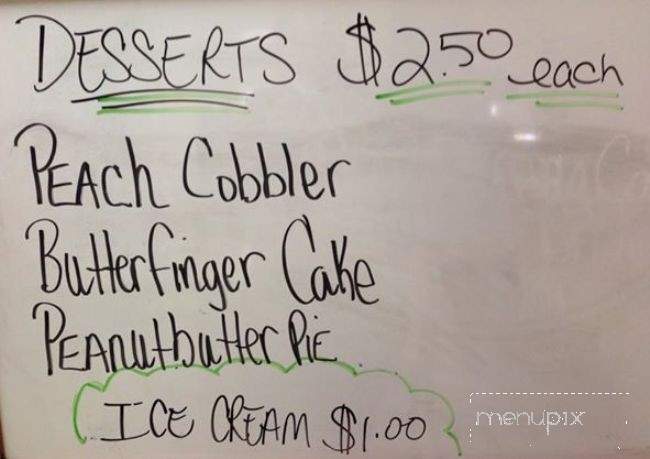 DESSERTS $2.50 each
PEACh Cobbler
Butterfinger Cake
PEAnutbutter PiE
ICE CREAM $1.00
menupix